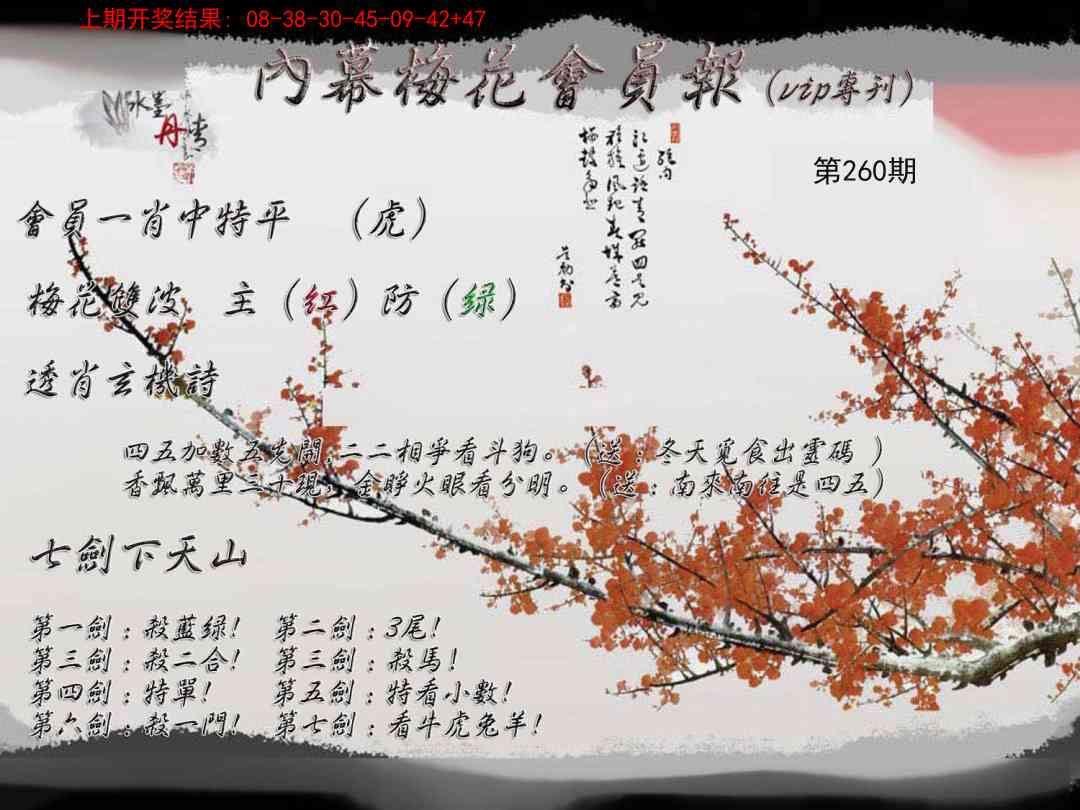 上期开奖结果: 08-38-30-45-09-42+47
內幕梅花會員報(vip專刊)
水墨
丹青
第260期
會員一肖中特平 （虎）
梅花雙波 主（红）防（绿）
透肖玄機詩
四五加數五先開,二二相爭看斗狗。（送：冬天覓食出靈碼 ）
香飄萬里三十現，金睜火眼看分明。（送：南來南往是四五）
七劍下天山
第一劍：殺藍绿! 第二劍：3尾!
第三劍：殺二合! 第三劍：殺馬!
第四劍：特單! 第五劍：特看小數!
第六劍：殺一門! 第七劍：看牛虎兔羊!